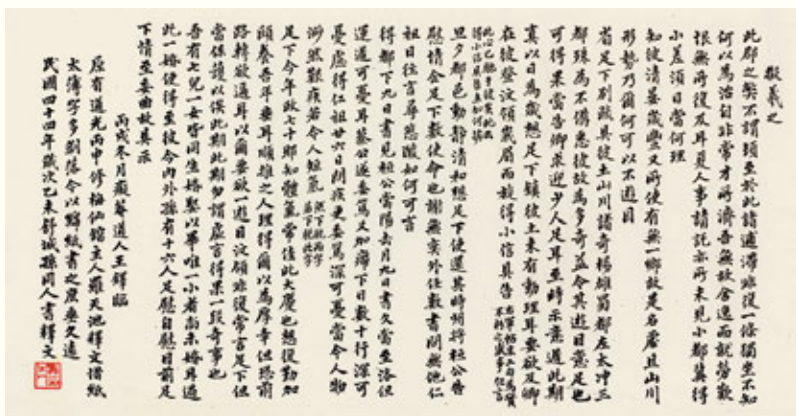 擬羲之
此郡之弊不謂頓至於此諸逋滯非復一條獨坐不知
何以為治自非常才所濟吾無故舍逸而就勞歎
恨無所復及耳夏人事請託亦所未見小都冀得
小差須日當何理
知彼清晏歲豐又所使有無一鄉故是名處且山川
形勢乃爾何可以不遊目
省足下別疏具彼土山川諸奇楊雄蜀都左太沖三
都殊為不備悉彼故為多奇益令其遊目意足也
可得果當告卿求迎少人足耳至時示意遲此期
真以日為歲想足下鎮彼土未有動理耳要欲及卿
在彼登汶領峨眉而旋得小信具告
旦夕都邑動靜清和想足下使還具時州將桓公告
慰情企足下數使命也謝無奕外任數書問無他仁
祖日往言尋悲酸如何可言
得都下九日書見桓公當陽去月九日書久當至洛但
運遲可憂耳蔡公遂委篤又加癬下日數十行深可
憂慮得仁祖廿六日問疾更委篤深可憂當今人物
渺然艱疾若令人短氣
足下今年政七十耶知體氣常佳此大慶也想復勤加
頤養吾年垂耳順推之人理得爾以為厚幸但恐前
路轉欲逼耳以爾要欲一遊目汶領非復常言足下但
當保護以俟此期勿謂虛言得果一段奇事也
吾有七兒一女皆同生婚娶以畢唯一小者尚未婚耳過
此一婚便得至彼今內外孫有十六人足慰自慰目前足
下情至委曲故具示
丙戌冬月癡菴道人王鐸臨
原有道光丙申修梅仙館主人羅天池釋文惜紙
太薄字多剝落今以黟紙書之庶垂久遠
民國四十四年歲次乙未舒城孫同人書釋文